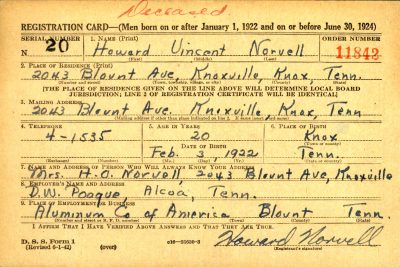 Deceased
REGISTRATION CARD—(Men born on or after January 1, 1922 and on or before June 30, 1924)
SERIAL NUMBER 1. NAME (Print) ORDER NUMBER
N 20 Howard Vincent Norvell 11842
(First) (Middle) (Last)
2. PLACE OF RESIDENCE (Print)
2043 Blount Ave, Knoxville, Knox, Tenn.
(Number and street) (Town, township, village, or city) (County) (State)
[THE PLACE OF RESIDENCE GIVEN ON THE LINE ABOVE WILL DETERMINE LOCAL BOARD
JURISDICTION; LINE 2 OF REGISTRATION CERTIFICATE WILL BE IDENTICAL]
3. MAILING ADDRESS
2043 Blount Ave. Knoxville, Knox, Tenn
[Mailing address if other than place indicated on line 2. If same insert word same]
4. TELEPHONE 5. AGE IN YEARS 6. PLACE OF BIRTH
4-1535 20 Knox
DATE OF BIRTH (Town or county)
Feb. 3 1922 Tenn.
(Exchange) (Number) (Mo.) (Day) (Yr.) (State or country)
7. NAME AND ADDRESS OF PERSON WHO WILL ALWAYS KNOW YOUR ADDRESS
Mrs. H. O. Norvell, 2043 Blount Ave, Knoxville
8. EMPLOYER'S NAME AND ADDRESS
D.W. Pogque Alcoa, Tenn.
9. PLACE OF EMPLOYMENT OR BUSINESS
Aluminum Co of America Blount Tenn.
(Number and street or R. F. D. number) (Town) (County) (State)
I AFFIRM THAT I HAVE VERIFIED ABOVE ANSWERS AND THAT THEY ARE TRUE.
D. S. S. Form 1
(Revised 6-1-42) (over) Howard Norvell
(Registrant's signature)